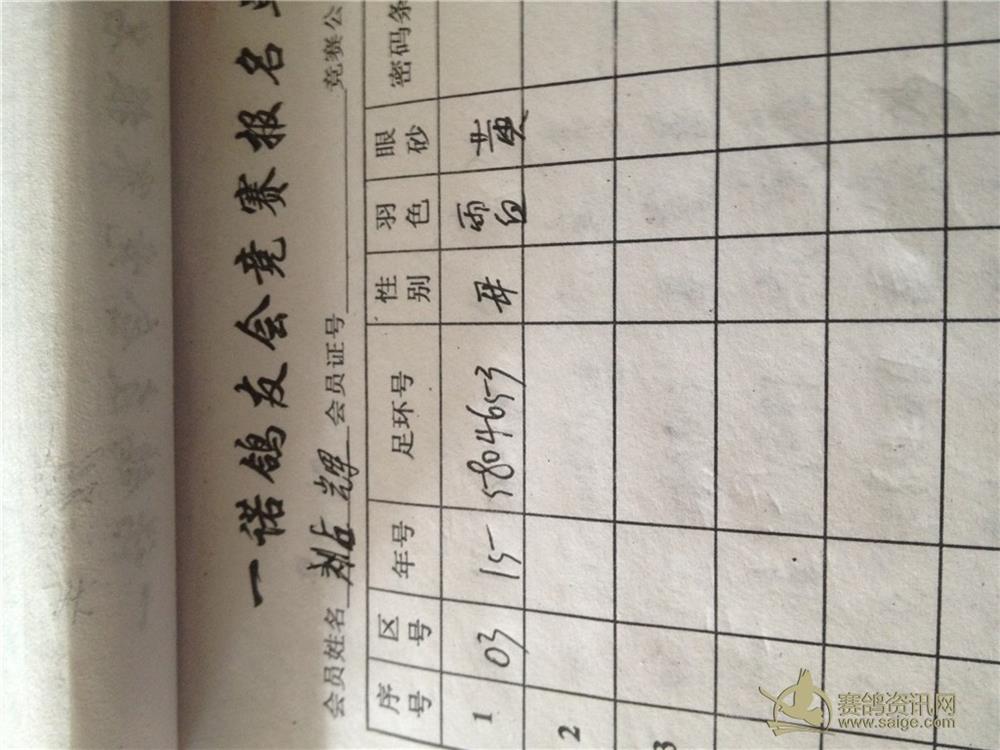 一诺鸽友会竞赛报名
会员姓名 占辉 会员证号 竞赛公
序号 区号 年号 足环号 性别 羽色 眼砂 密码条
1 03 15 5804653 母 雪白 黄
2
3
赛鸽资讯网
www.saige.com